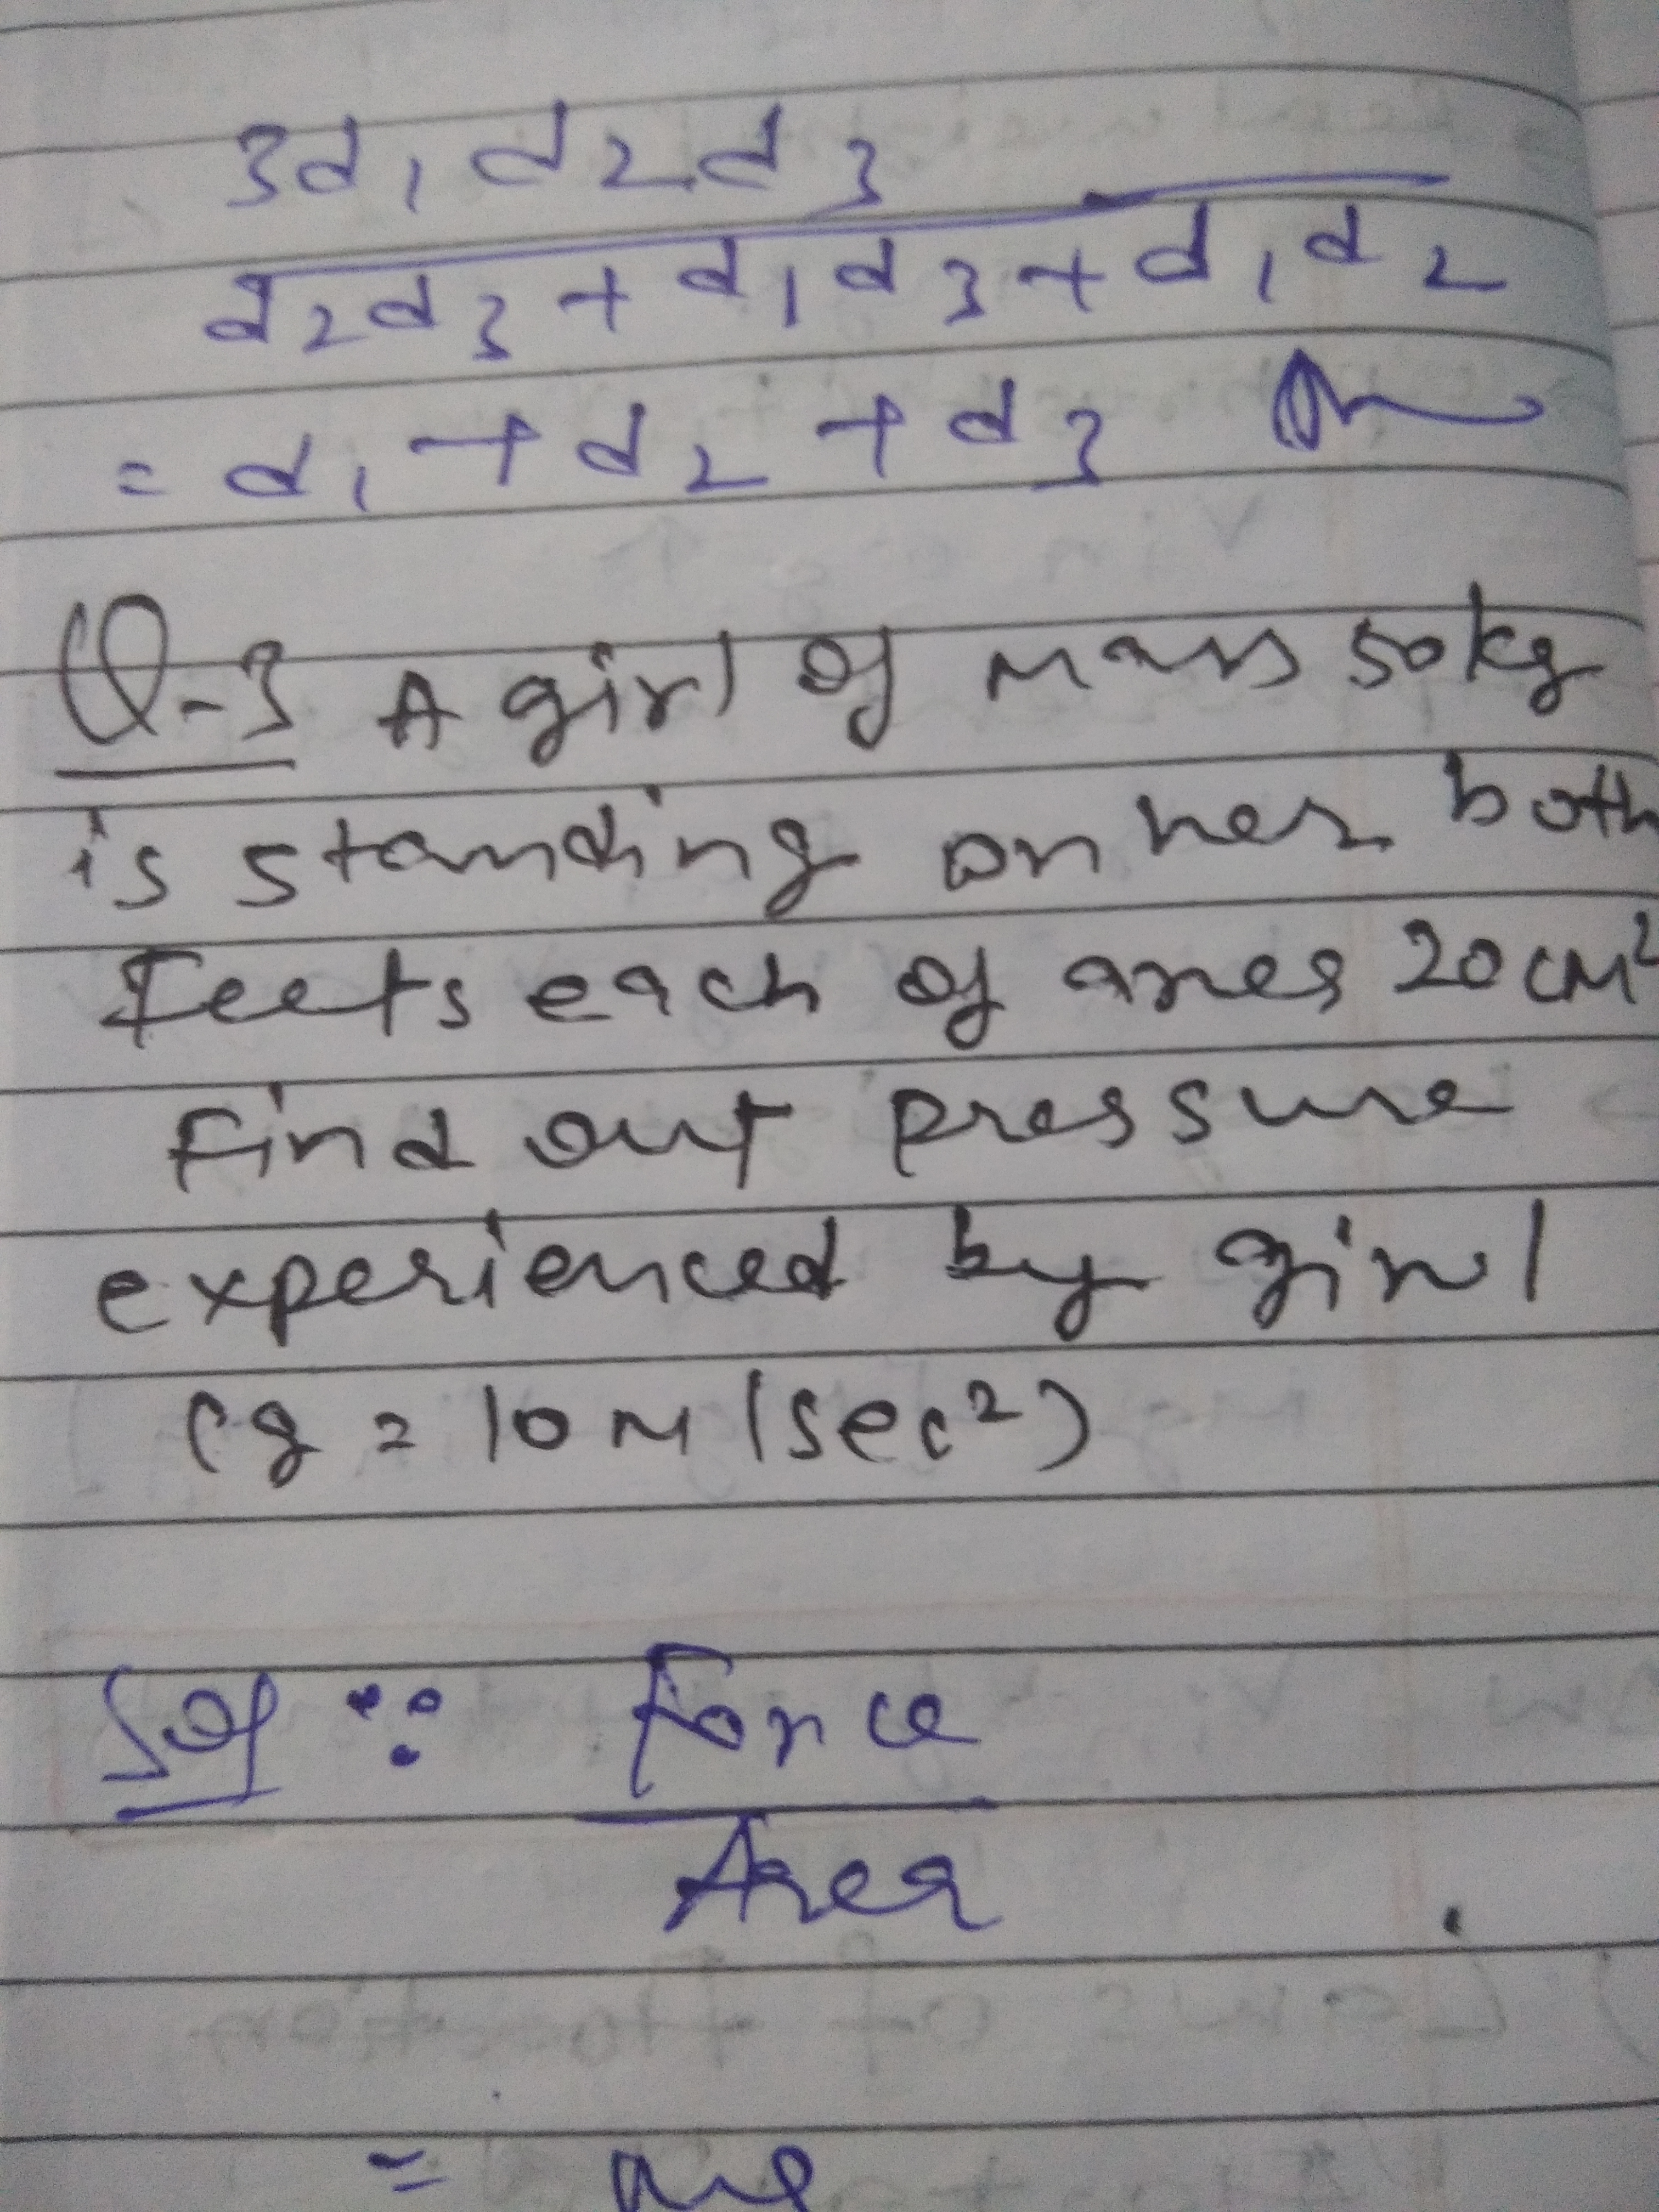 3d₁d₂d₃
d₂d₃+d₁d₃+d₁d₂
= d₁+d₂+d₃ Ans
Q-3 A girl of mass 50kg
is standing on her both
Feets each of area 20cm²
find out pressure
experienced by girl
(g=10m/sec²)
Sol ∵ Force
Area
=